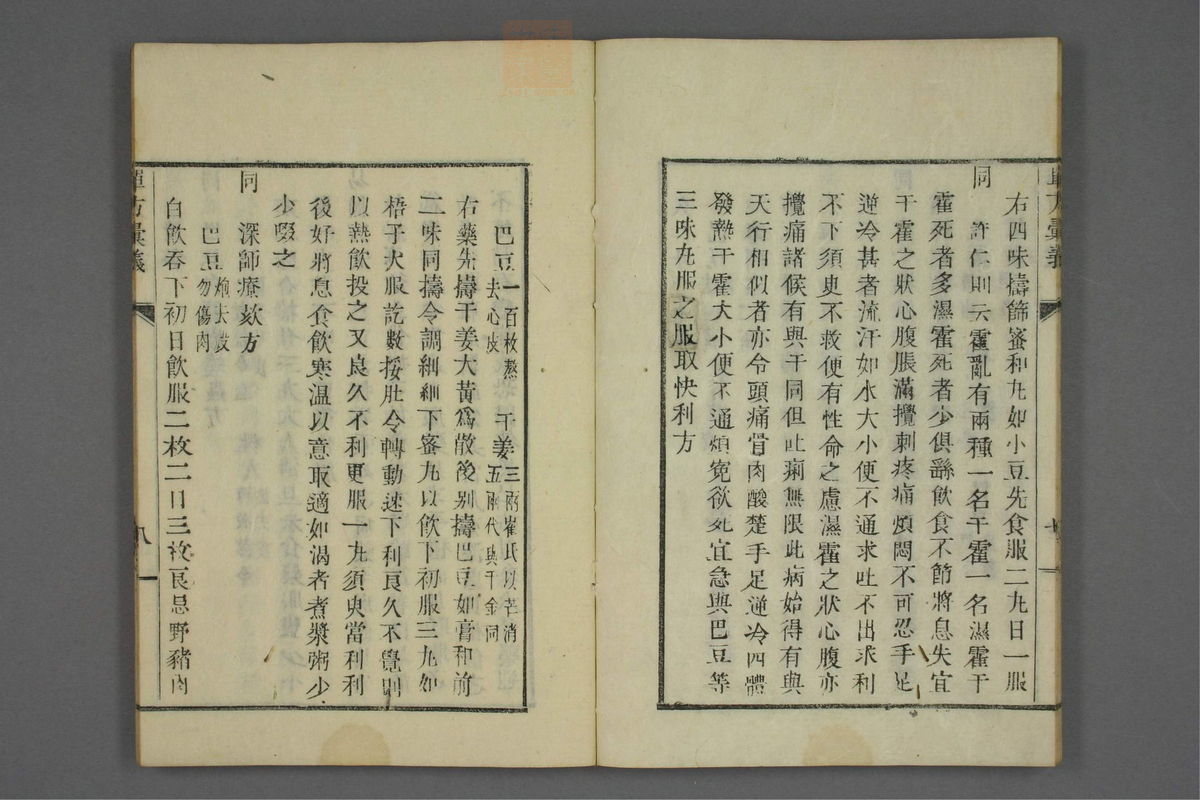 右四味擣篩蜜和丸如小豆先食服二丸日一服
同　許仁則云霍亂有兩種一名干霍一名濕霍干
霍死者多濕霍死者少俱繇飲食不節將息失宜
干霍之狀心腹脹滿攪刺疼痛煩悶不可忍手足
逆冷甚者流汗如水大小便不通求吐不出求利
不下須臾不救便有性命之慮濕霍之狀心腹亦
攪痛諸候有與干同但吐痢無限此病始得有與
天行相似者亦令頭痛骨肉酸楚手足逆冷四體
發熱干霍大小便不通煩寃欲死宜急與巴豆等
三味丸服之服取快利方
巴豆一百枚熬去心皮　干姜三兩崔氏以芒消五兩代與千金同
右藥先擣干姜大黃爲散後别擣巴豆如膏和前
二味同擣令調細細下蜜丸以飲下初服三丸如
梧子大服訖數挼肚令轉動速下利良久不覺則
以熱飲投之又良久不利更服一丸須臾當利利
後好將息食飲寒温以意取適如渴者煮漿粥少
少啜之
同　深師療欬方
巴豆炮去皮勿傷肉
白飲吞下初日飲服二枚二日三枚良忌野豬肉
單方彙義
八
單方彙義
七